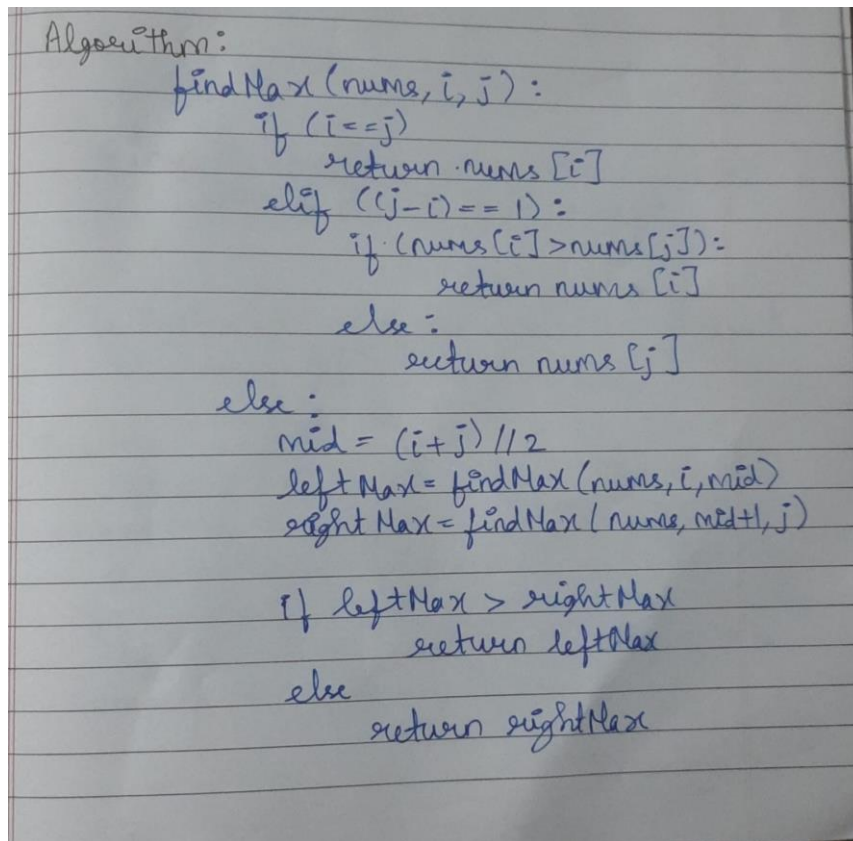 Algorithm:
findMax (nums, i, j) :
if (i==j)
return nums [i]
elif ((j-i) == 1) :
if (nums [i] > nums [j]) :
return nums [i]
else :
return nums [j]
else :
mid = (i+j) // 2
leftMax = findMax (nums, i, mid)
rightMax = findMax ( nums, mid+1, j)
if leftMax > rightMax
return leftMax
else
return rightMax